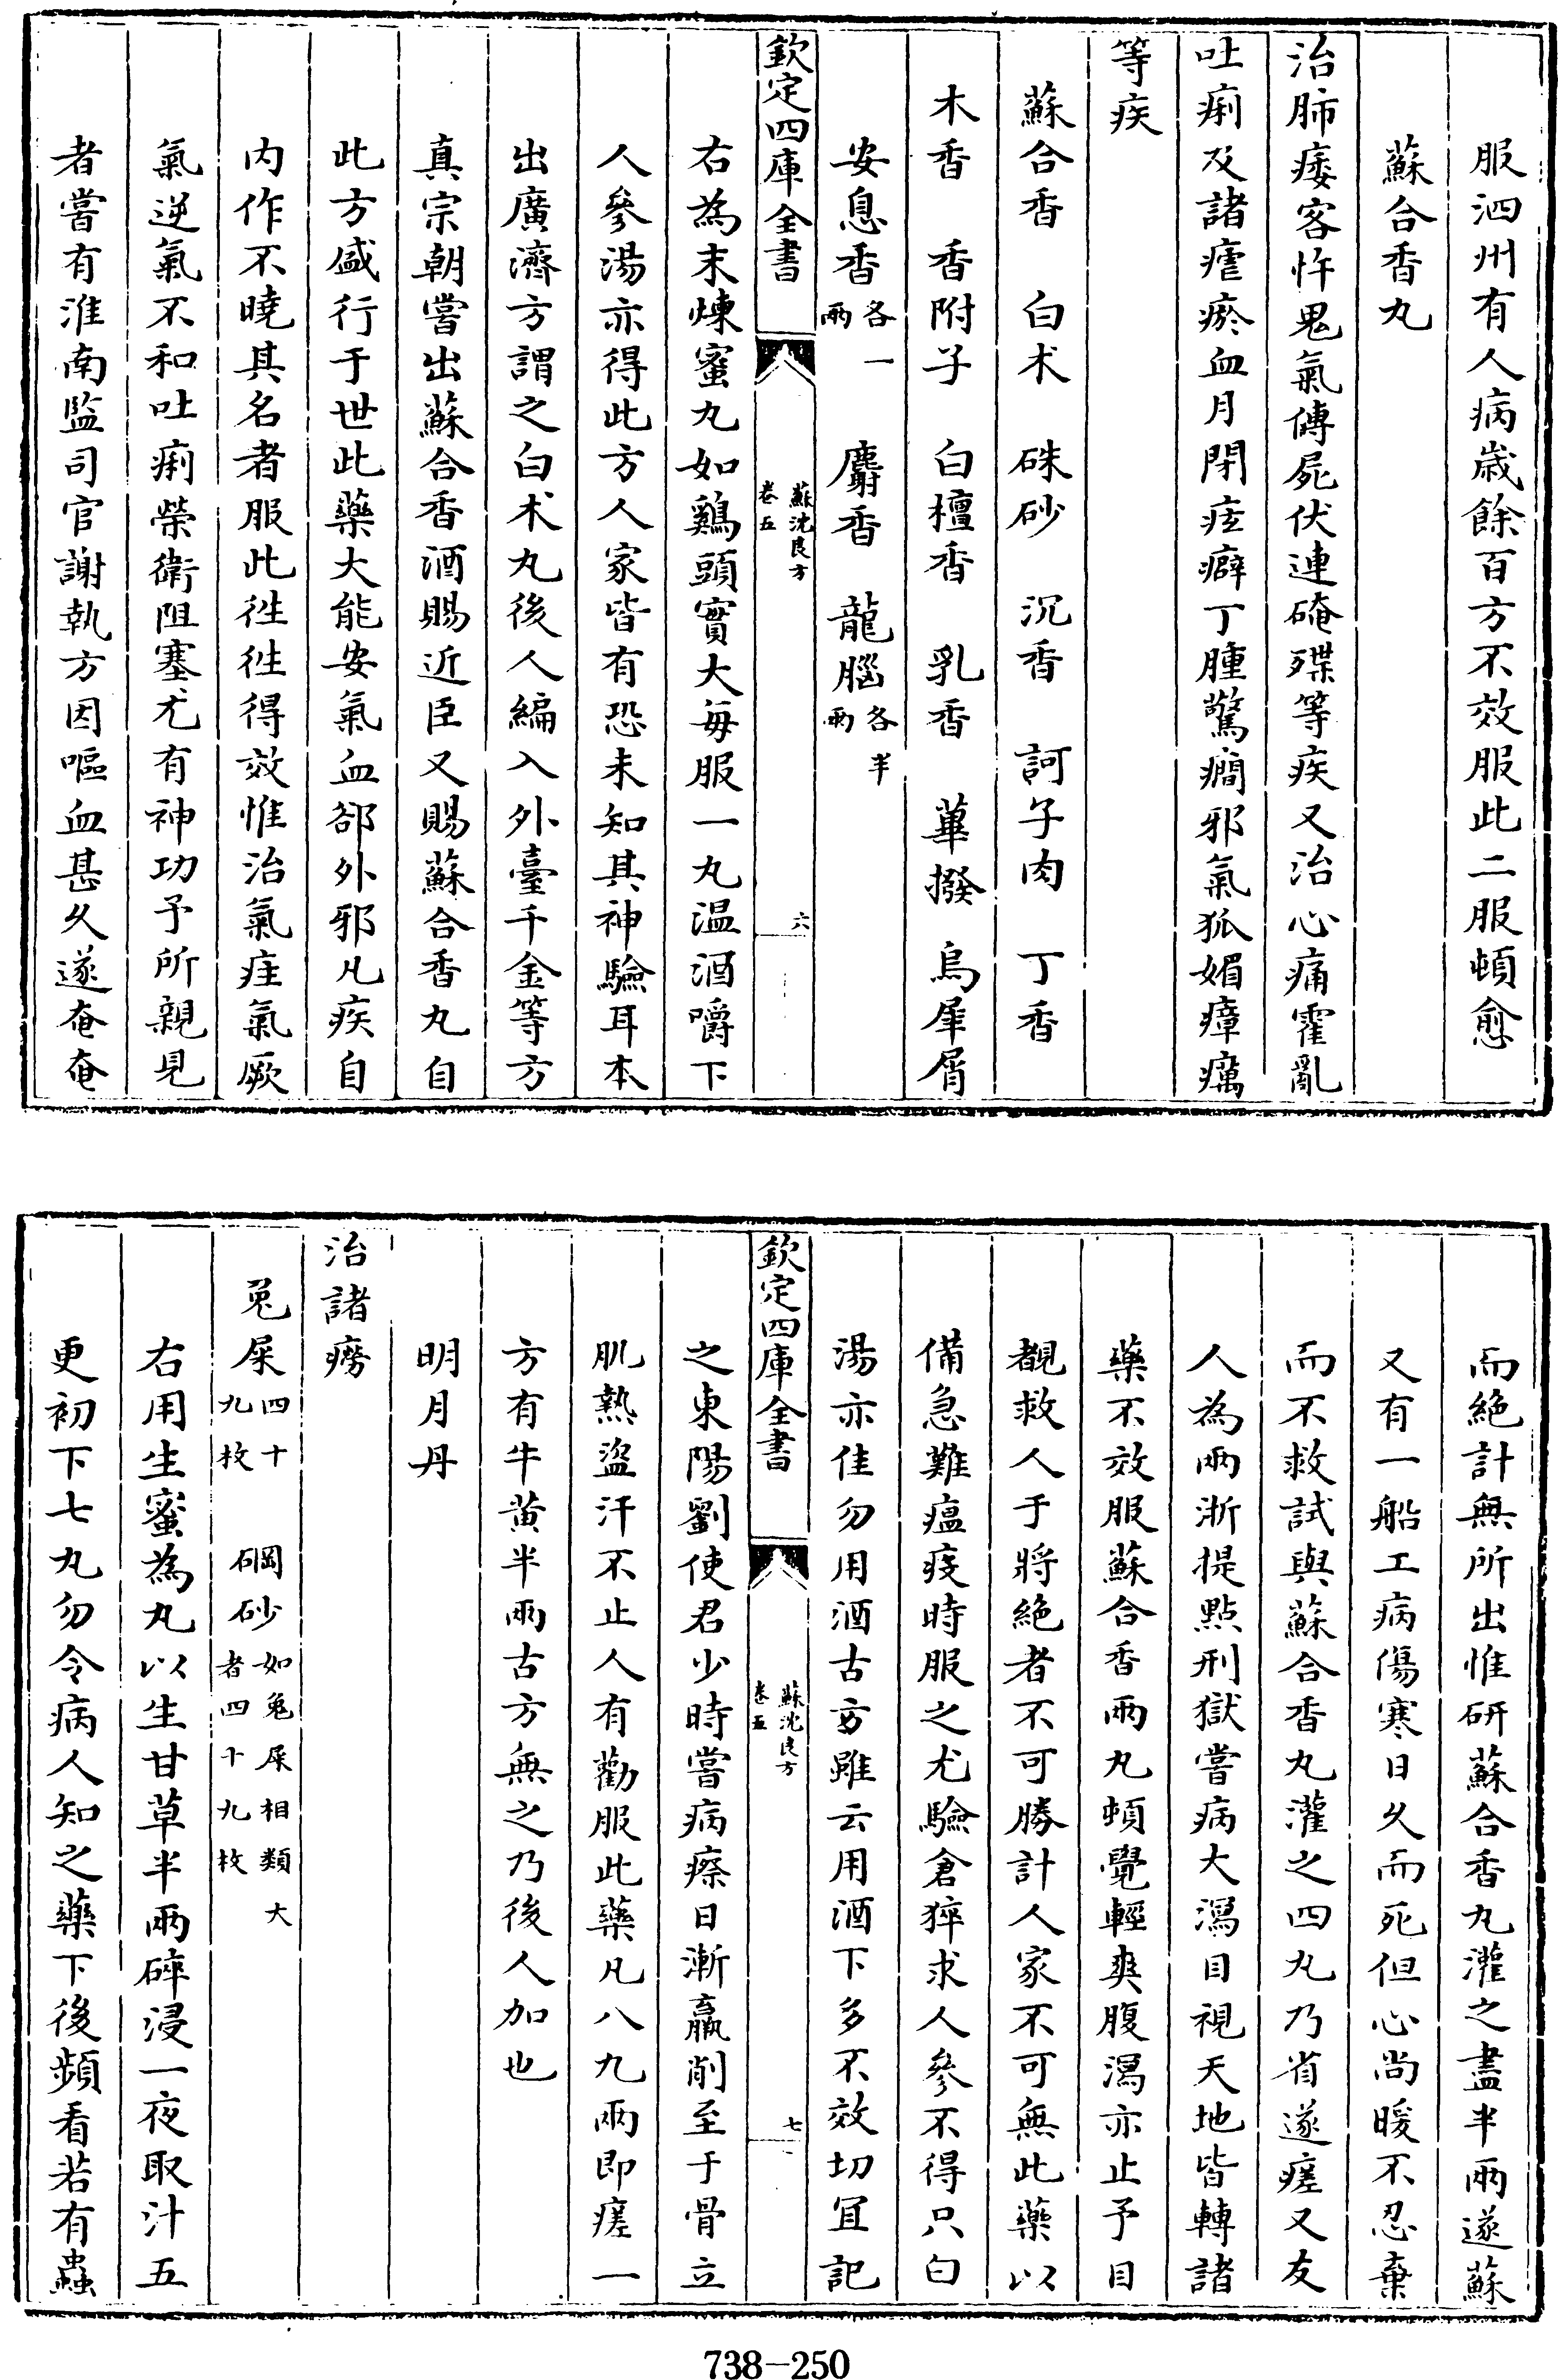 服泗州有人病歳餘百方不效服此二服頓愈
蘇合香丸
治肺痿客忤鬼氣傳屍伏連殗殜等疾又治心痛霍亂
吐痢及諸瘧瘀血月閉痃癖丁腫驚癎邪氣狐媚瘴癘
等疾
蘇合香　白术　硃砂　沉香　訶子肉　丁香
木香　香附子　白檀香　乳香　蓽撥　烏犀屑
安息香各一兩　麝香　龍腦各半兩
欽定四庫全書　蘇沈良方卷五　六
右為末煉蜜丸如鷄頭實大每服一丸温酒嚼下
人參湯亦得此方人家皆有恐未知其神驗耳本
出廣濟方謂之白术丸後人編入外臺千金等方
真宗朝嘗出蘇合香酒賜近臣又賜蘇合香丸自
此方盛行于世此藥大能安氣血郤外邪凡疾自
内作不曉其名者服此徃徃得效惟治氣疰氣厥
氣逆氣不和吐痢榮衛阻塞尤有神功予所親見
者嘗有淮南監司官謝執方因嘔血甚久遂奄奄
而絶計無所出惟研蘇合香丸灌之盡半兩遂蘇
又有一船工病傷寒日久而死但心尚暖不忍棄
而不救試與蘇合香丸灌之四丸乃省遂瘥又友
人為兩浙提點刑獄嘗病大瀉目視天地皆轉諸
藥不效服蘇合香兩丸頓覺輕爽腹瀉亦止予目
覩救人于將絶者不可勝計人家不可無此藥以
備急難瘟疫時服之尤驗倉猝求人參不得只白
湯亦佳勿用酒古方雖云用酒下多不效切宜記
欽定四庫全書　蘇沈良方卷五　七
之東陽劉使君少時嘗病瘵日漸羸削至于骨立
肌熱盜汗不止人有勸服此藥凡八九兩即瘥一
方有牛黄半兩古方無之乃後人加也
明月丹
治諸癆
兎屎四十九枚　硇砂如兎屎相類大者四十九枚
右用生蜜為丸以生甘草半兩碎浸一夜取汁五
更初下七丸勿令病人知之藥下後頻看若有蟲
738-250